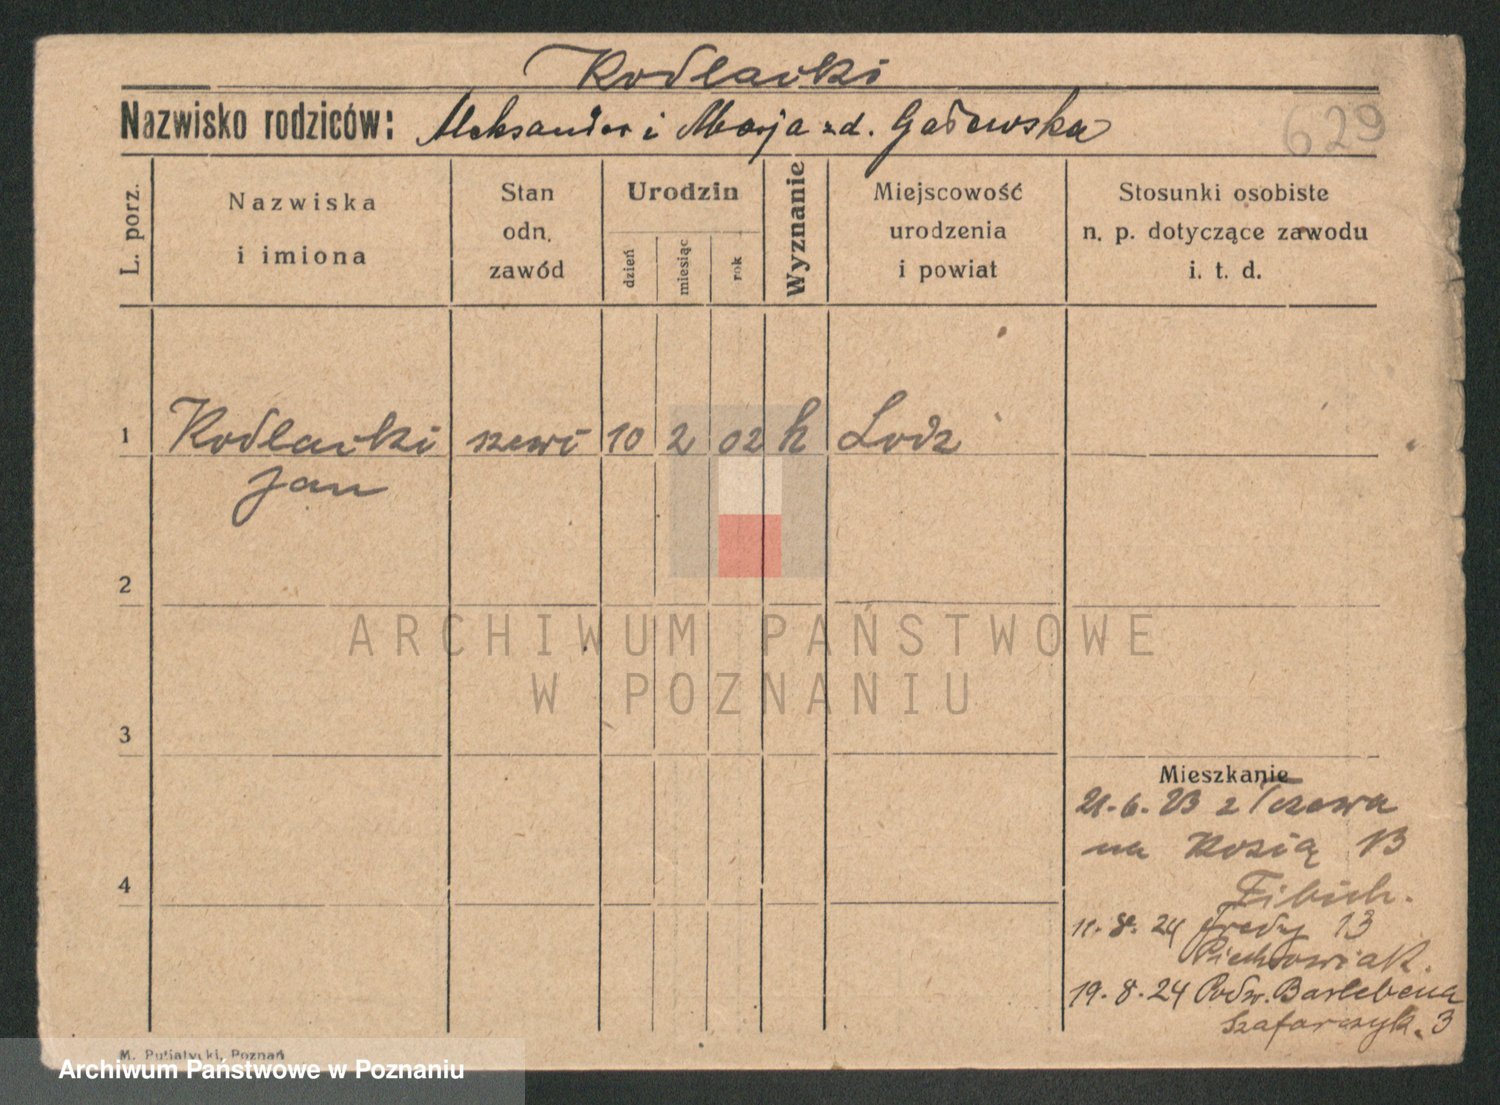 Kodlacki
Nazwisko rodziców: Aleksander i Marja zd. Gadewska
629
L. porz.
Nazwiska
i imiona
Stan
odn.
zawód
Urodzin
dzień
miesiąc
rok
Wyznanie
Miejscowość
urodzenia
i powiat
Stosunki osobiste
n. p. dotyczące zawodu
i. t. d.
1 Kodlacki szewc 10 2 02 k Lodz
Jan
2
ARCHIWUM PAŃSTWOWE
W POZNANIU
3
Mieszkanie
21.6.23 z Tczewa
na Kozią 13
Fibich.
4
11.8.24 Fredry 13
Piechowiak.
19.8.24 Podw. Barlebena
Szafarczyk. 3
M. Putiatycki, Poznań
Archiwum Państwowe w Poznaniu